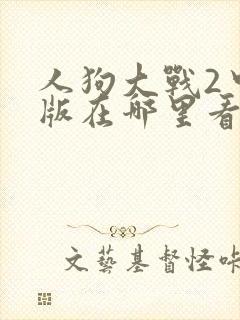 人狗大戰2
版在哪里看
文藝基督怪咔